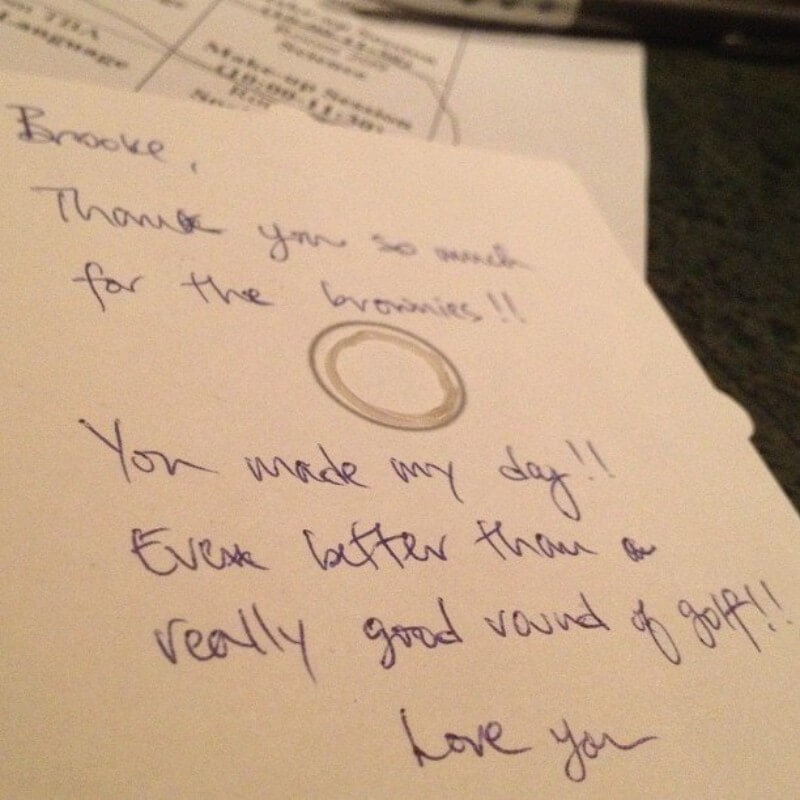 TBA
Language
Make-up Session
Science
Make-up Session
(10:00-11:30)
Brooke,
Thank you so much
for the brownies!!
You made my day!!
Even better than a
really good round of golf!!
Love you